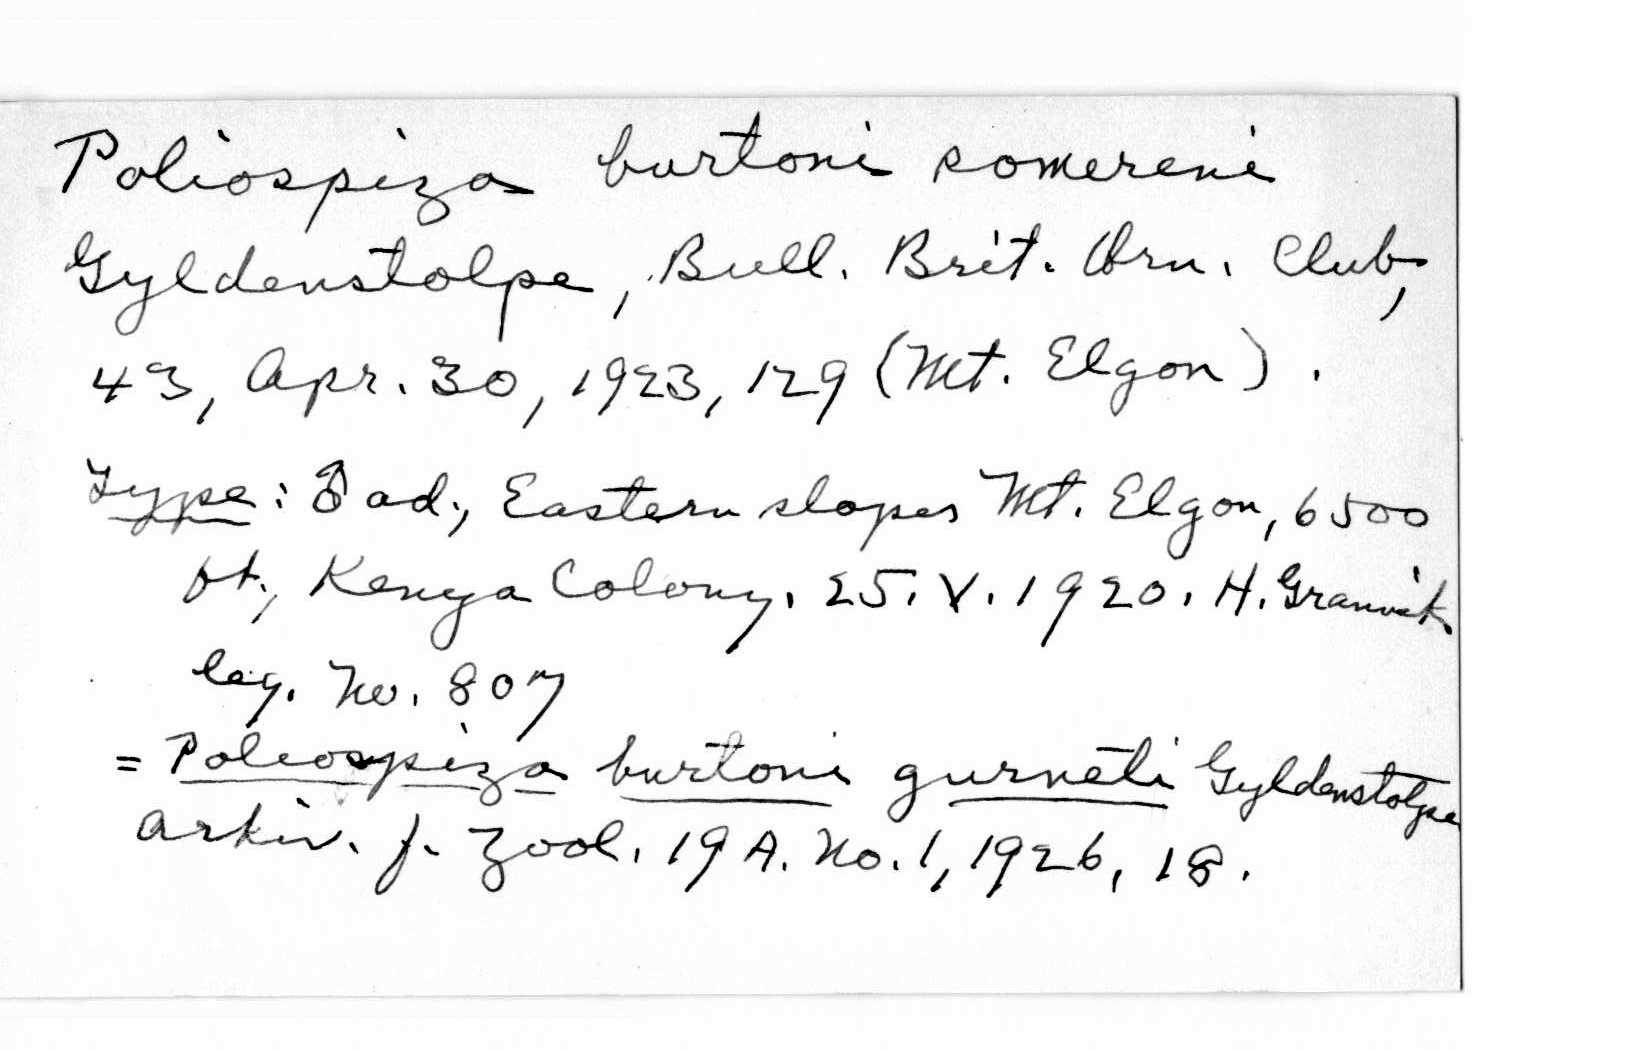 Poliospiza burtoni somereni
Gyldenstolpe, Bull. Brit. Orn. Club,
43, Apr. 30, 1923, 129 (Mt. Elgon).
Type: ♂ ad., Eastern slopes Mt. Elgon, 6500
ft., Kenya Colony. 25. V. 1920. H. Granvik.
leg. No. 807
= Poliospiza burtoni gurneti Gyldenstolpe
Arkiv. f. Zool. 19 A. No. 1, 1926, 18.